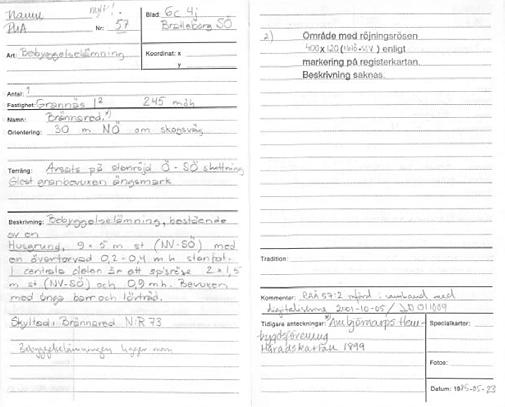 Hamn nytt!
RAÄ
Nr: 57
Blad 6c 4i
Bratteborg SÖ
Art: Bebyggelselämning
Koordinat: x
y
Antal: 1
Fastighet: Grannäs 1² 245 möh
Namn: Brännared *)
Orientering: 30 m NÖ om skogsväg
Terräng: Avsats på stenröjd Ö - SÖ sluttning
Glest granbevuxen ängsmark
Beskrivning: Bebyggelselämning, bestående
av en
Husgrund, 9 x 5 m st (NV-SÖ) med
en övertorvad 0,2-0,4 m h stenfot.
I centrala delen är ett spisröse 2 x 1,5
m st (NV-SÖ) och 0,9 m h. Bevuxen
med unga barr och lövträd.
Skyltad: Brännared NR 73
Bebyggelselämningen ligger inom
2) Område med röjningsrösen
400 x 120 ( ) enligt
markering på registerkartan.
Beskrivning saknas.
Tradition:
Kommentar: RAÄ 57:2 införd i samband med
digitalisering 2001-10-05
Tidigare anteckningar: *) Hem-
bygdsförening
Häradskartan 1899
Specialkartor:
Fotos:
Datum: 1985-05-23